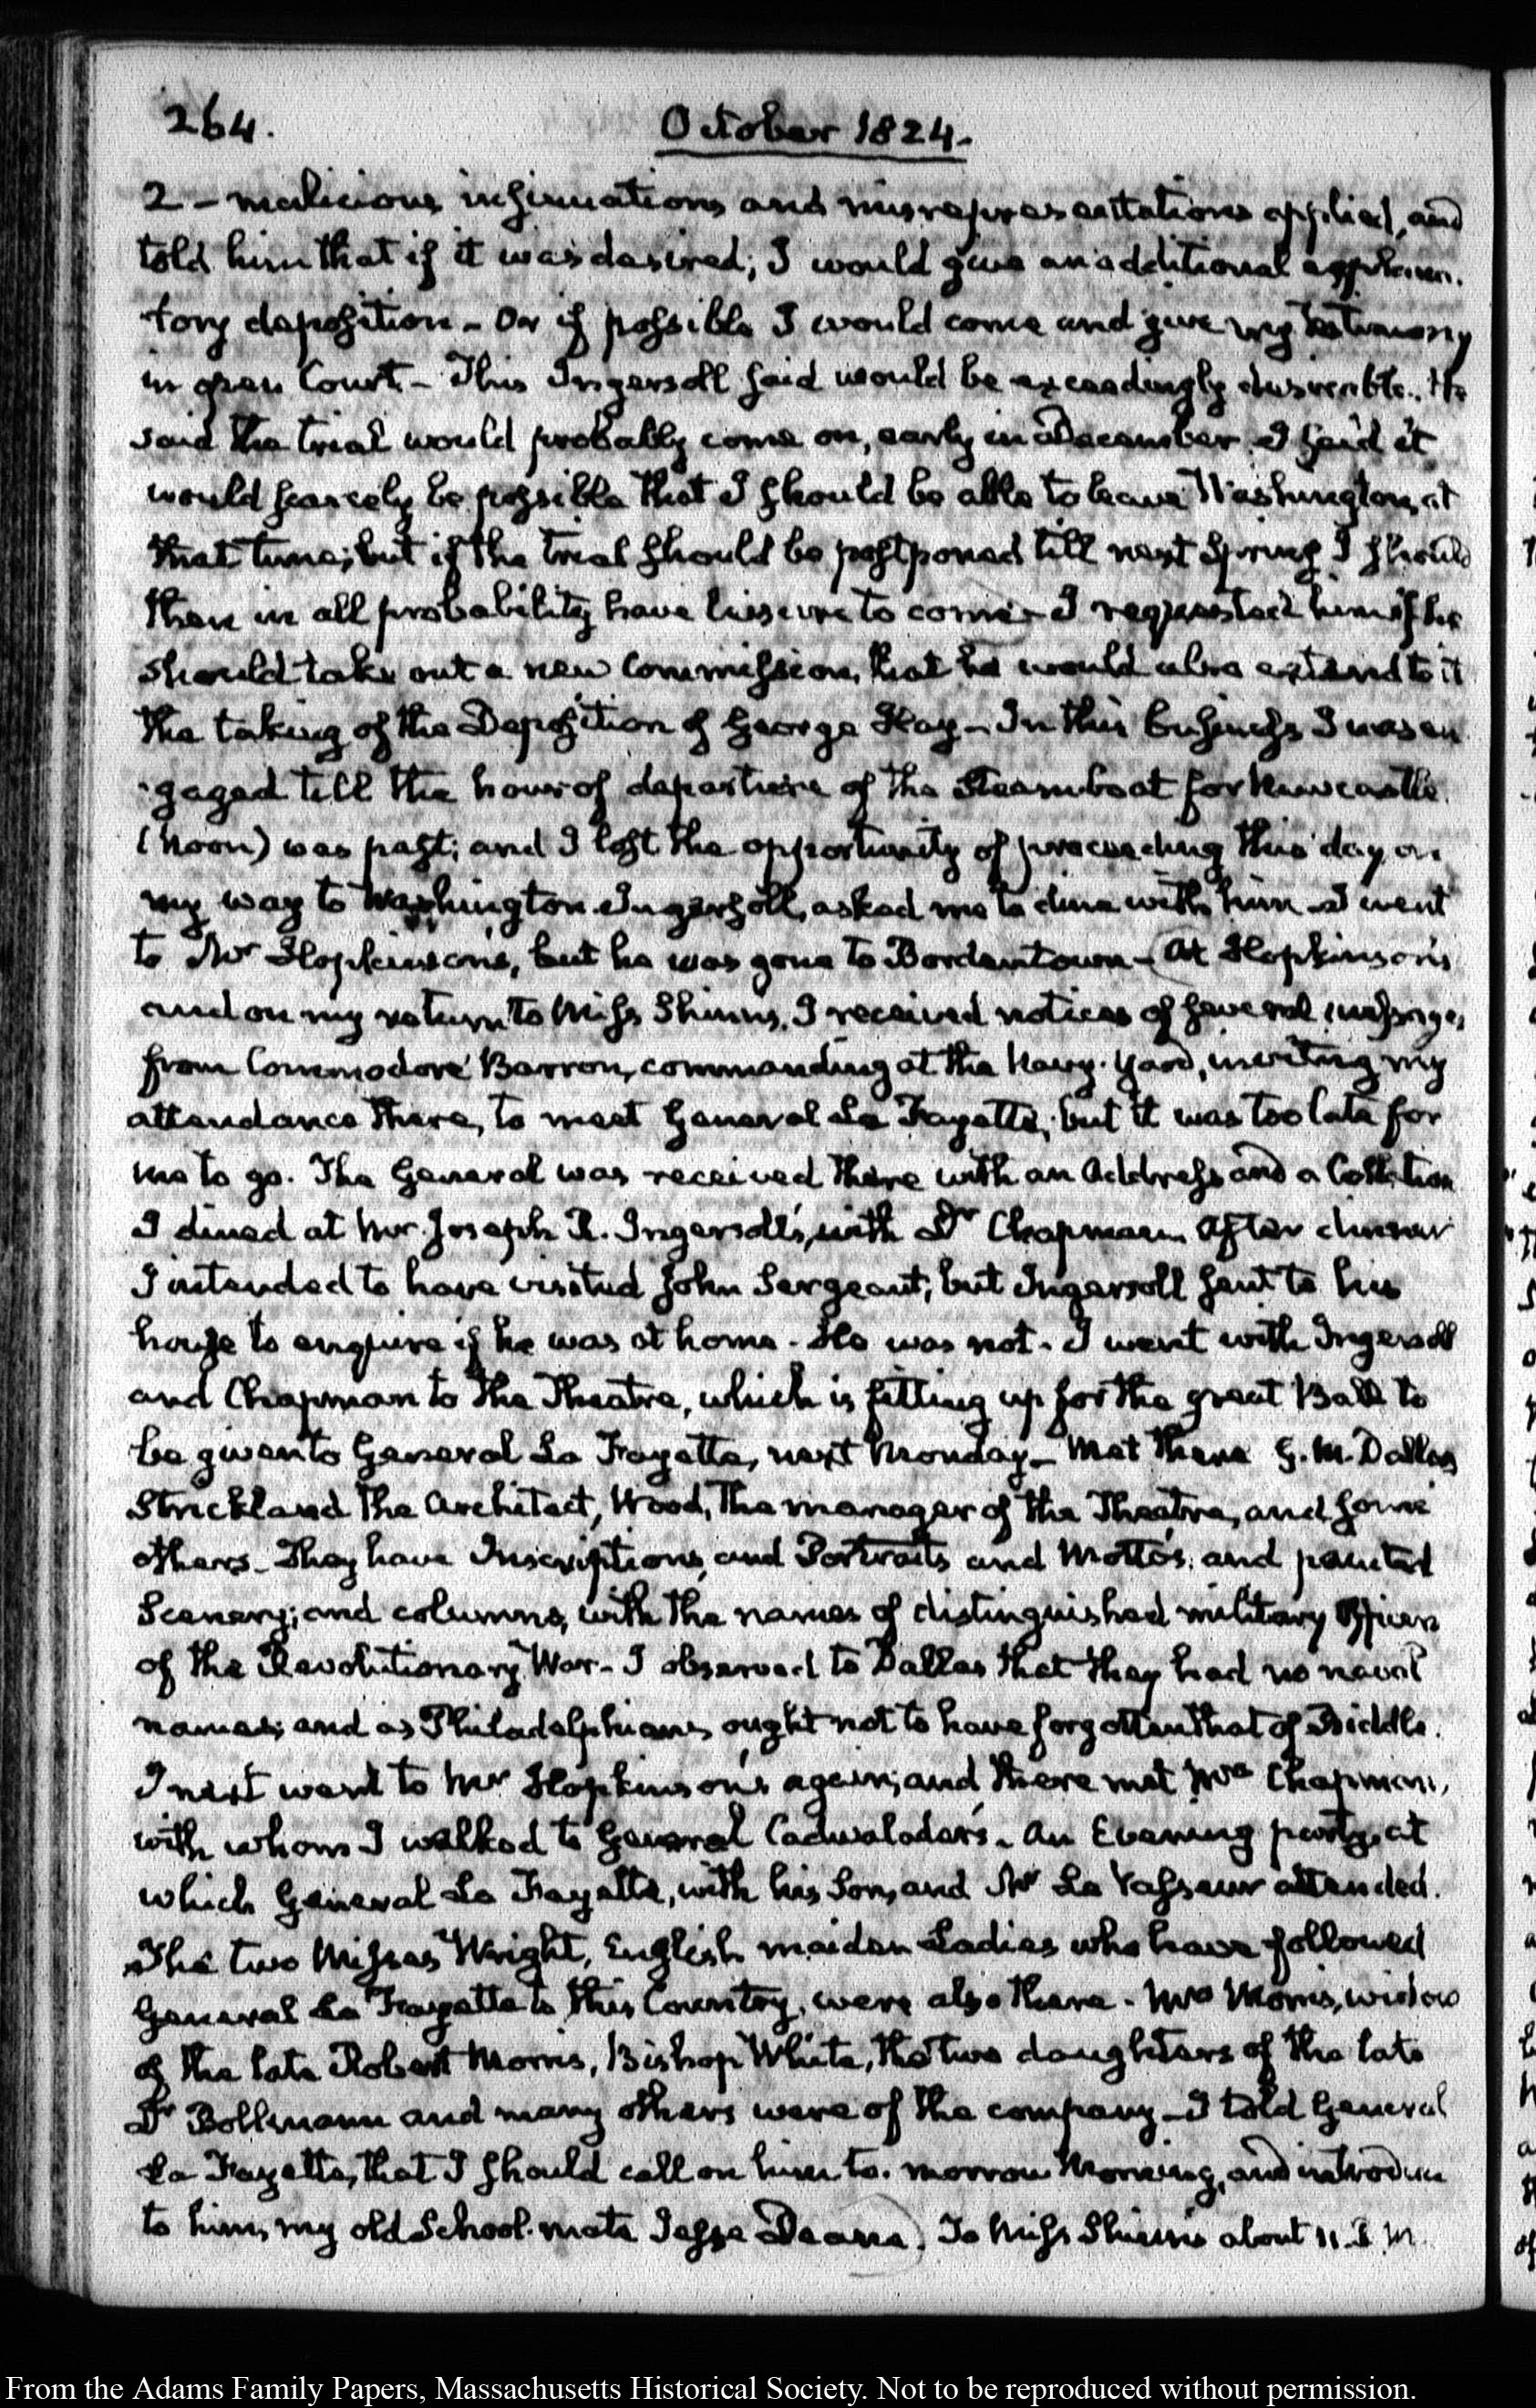 264.
October 1824.
2 - malicious insinuations and misrepresentations applied, and
told him that if it was desired, I would give an additional explana-
tory deposition - Or if possible I would come and give my testimony
in open Court - This Ingersoll said would be exceedingly desireable. He
said the trial would probably come on, early in December. I said it
would scarcely be possible that I should be able to leave Washington, at
that time; but if the trial should be postponed till next Spring I should
then in all probability have leisure to come - I requested him if he
should take out a new Commission, that he would also extend to it
the taking of the Deposition of George Hay - In this business I was en
gaged till the hour of departure of the Steamboat for Newcastle
(Noon) was past; and I lost the opportunity of proceeding this day on
my way to Washington. Ingersoll, asked me to dine with him - I went
to Mr Hopkinson's, but he was gone to Bordentown - At Hopkinson's
and on my return to Miss Shinns, I received notices of several messages
from Commodore Barron, commanding at the Navy-Yard, inviting my
attendance there, to meet General La Fayette, but it was too late for
me to go. The General was received there with an Address and a Collation
I dined at Mr Joseph R. Ingersoll's, with Dr Chapman. After dinner
I intended to have visited John Sergeant, but Ingersoll sent to his
house to enquire if he was at home - He was not. I went with Ingersoll
and Chapman to the Theatre, which is fitting up for the great Ball to
be given to General La Fayette, next Monday - Met there G. M. Dallas
Strickland the Architect, Wood, the manager of the Theatre, and some
others - They have Inscriptions, and Portraits and Motto's, and painted
Scenery; and columns, with the names of distinguished military Officers
of the Revolutionary War - I observed to Dallas that they had no naval
names; and as Philadelphians, ought not to have forgotten that of Biddle.
I next went to Mr Hopkinson's again; and there met Mrs Chapman,
with whom I walked to General Cadwalader's - An Evening party, at
which General La Fayette, with his Son, and Mr La Vasseur attended.
The two Misses Wright, English maiden Ladies who have followed
General La Fayette to this Country, were also there - Mrs Morris, widow
of the late Robert Morris, Bishop White, the two daughters of the late
Dr Bollmann and many others were of the company - I told General
La Fayette, that I should call on him to-morrow Morning, and introduce
to him, my old School-mate Jesse Deane. To Miss Shinn's about 11. P. M.
From the Adams Family Papers, Massachusetts Historical Society. Not to be reproduced without permission.